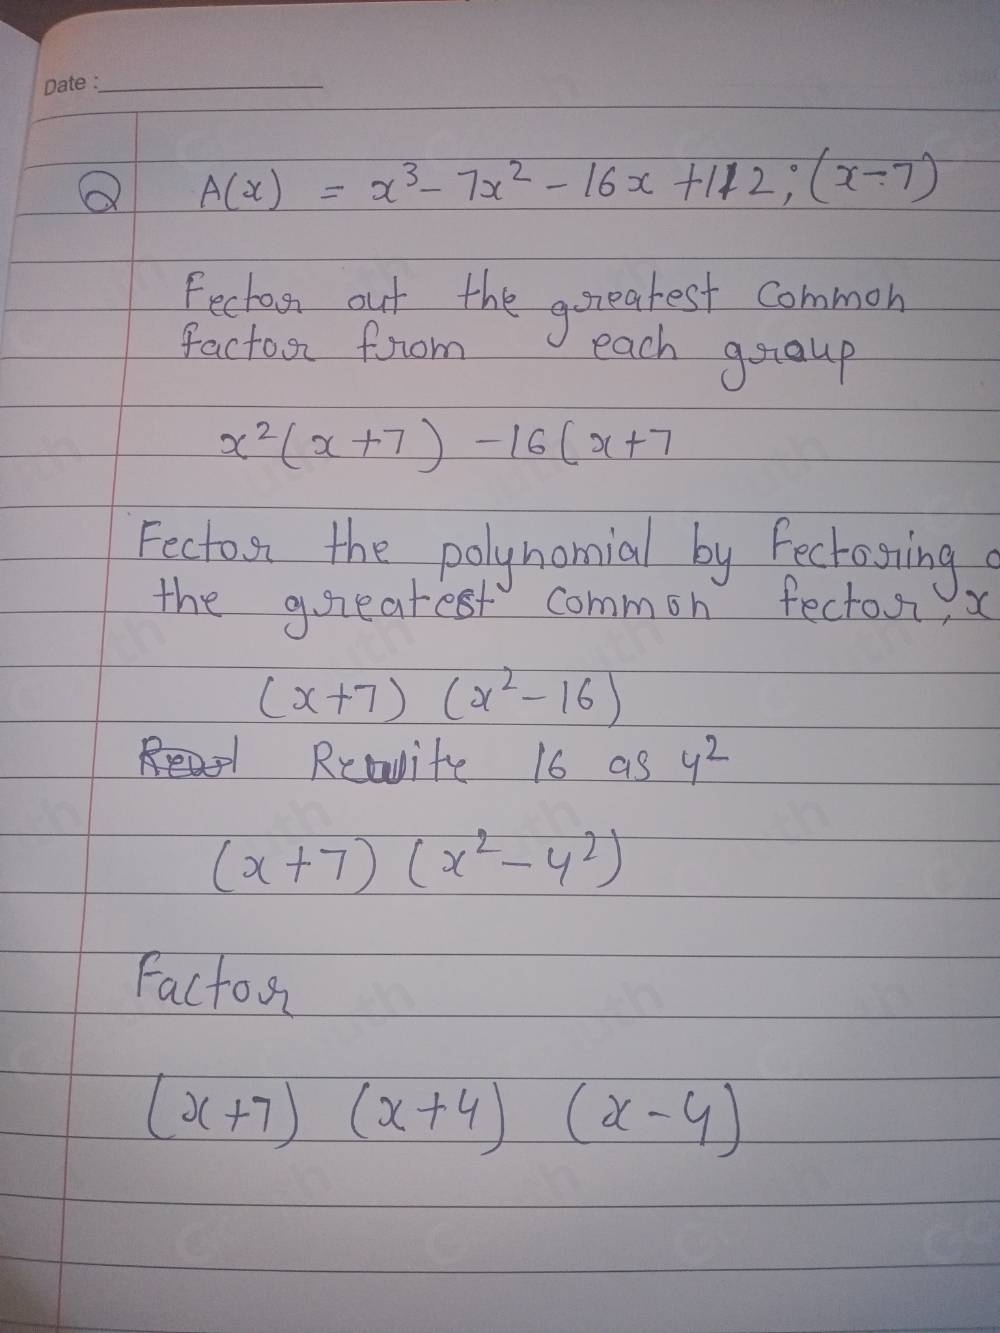 Date :
Q A(x) = x³ - 7x² - 16x + 112 ; (x-7)
Fector out the greatest common
factor from each group
x²(x+7) - 16(x+7
Fector the polynomial by Fectoring
the greatest common fector, x
(x+7) (x²-16)
Rewite 16 as 4²
(x+7) (x²-4²)
Factor
(x+7) (x+4) (x-4)